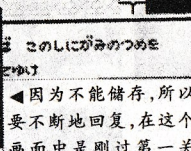 ば このしにがみのつめを
さゆけ
◀因为不能储存,所以
要不断地回复,在这个
画面中是刚过第一关